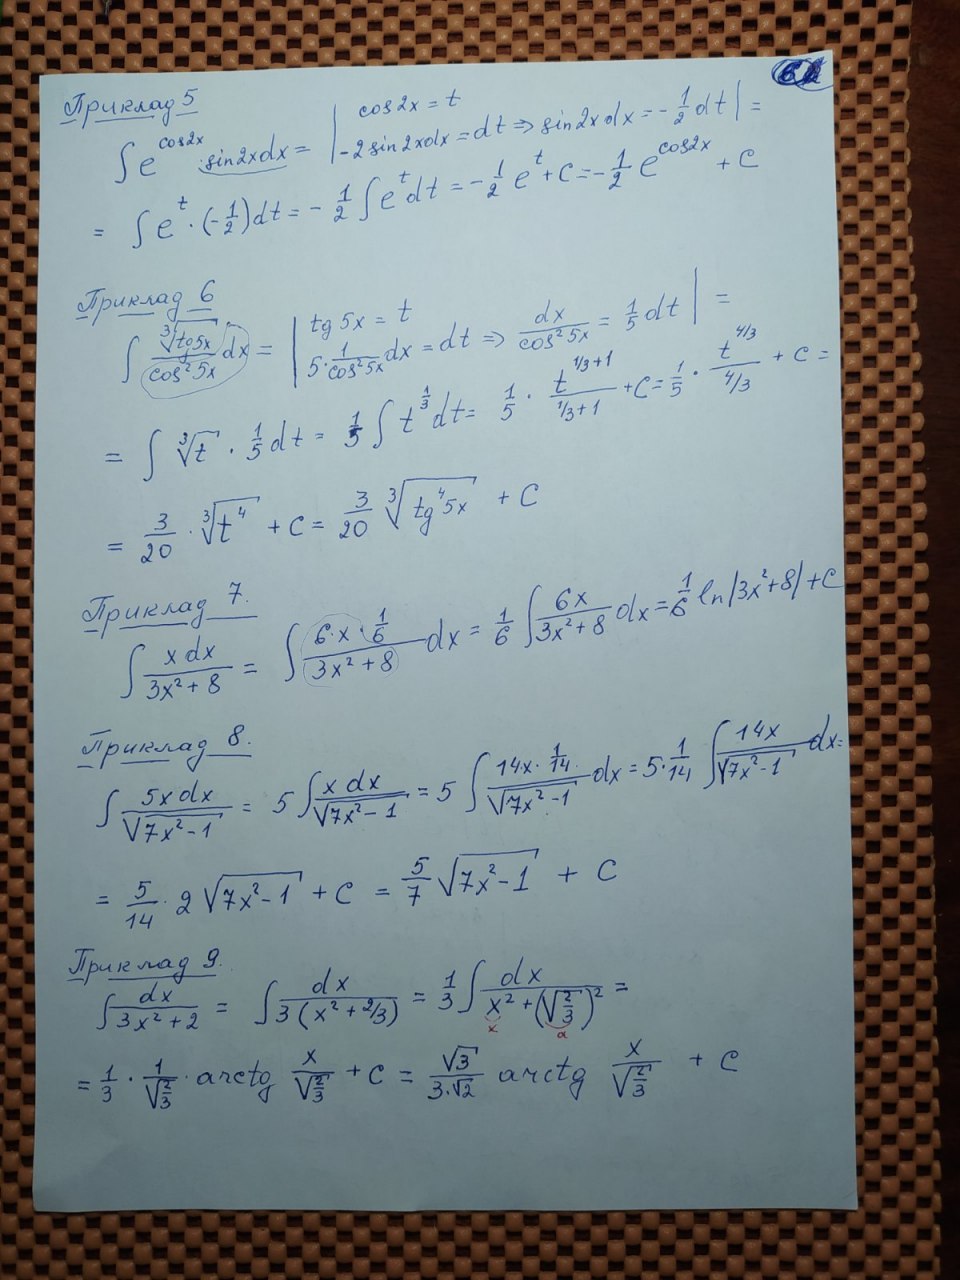 Приклад 5
∫ e^{cos2x} · sin2x dx = | cos2x = t
-2 sin2x dx = dt ⇒ sin2x dx = -1/2 dt | =
= ∫ e^t · (-1/2) dt = - 1/2 ∫ e^t dt = - 1/2 e^t + C = - 1/2 e^{cos2x} + C
Приклад 6
∫ ∛(tg5x)/cos²5x dx = | tg 5x = t
5 · 1/cos²5x dx = dt ⇒ dx/cos²5x = 1/5 dt | =
= ∫ ∛t · 1/5 dt = 1/5 ∫ t^{1/3} dt = 1/5 · t^{1/3+1}/(1/3+1) + C = 1/5 · t^{4/3}/(4/3) + C =
= 3/20 · ∛(t⁴) + C = 3/20 ∛(tg⁴5x) + C
Приклад 7.
∫ x dx/(3x² + 8) = ∫ (6·x · 1/6)/(3x² + 8) dx = 1/6 ∫ 6x/(3x² + 8) dx = 1/6 ln|3x²+8| + C
Приклад 8.
∫ 5x dx/√(7x² - 1) = 5 ∫ x dx/√(7x² - 1) = 5 ∫ (14x · 1/14)/√(7x² - 1) dx = 5 · 1/14 ∫ 14x/√(7x² - 1) dx =
= 5/14 · 2 √(7x² - 1) + C = 5/7 √(7x² - 1) + C
Приклад 9.
∫ dx/(3x² + 2) = ∫ dx/(3(x² + 2/3)) = 1/3 ∫ dx/(x² + (√(2/3))²) =
x a
= 1/3 · 1/√(2/3) · arctg x/√(2/3) + C = √3/(3·√2) arctg x/√(2/3) + C